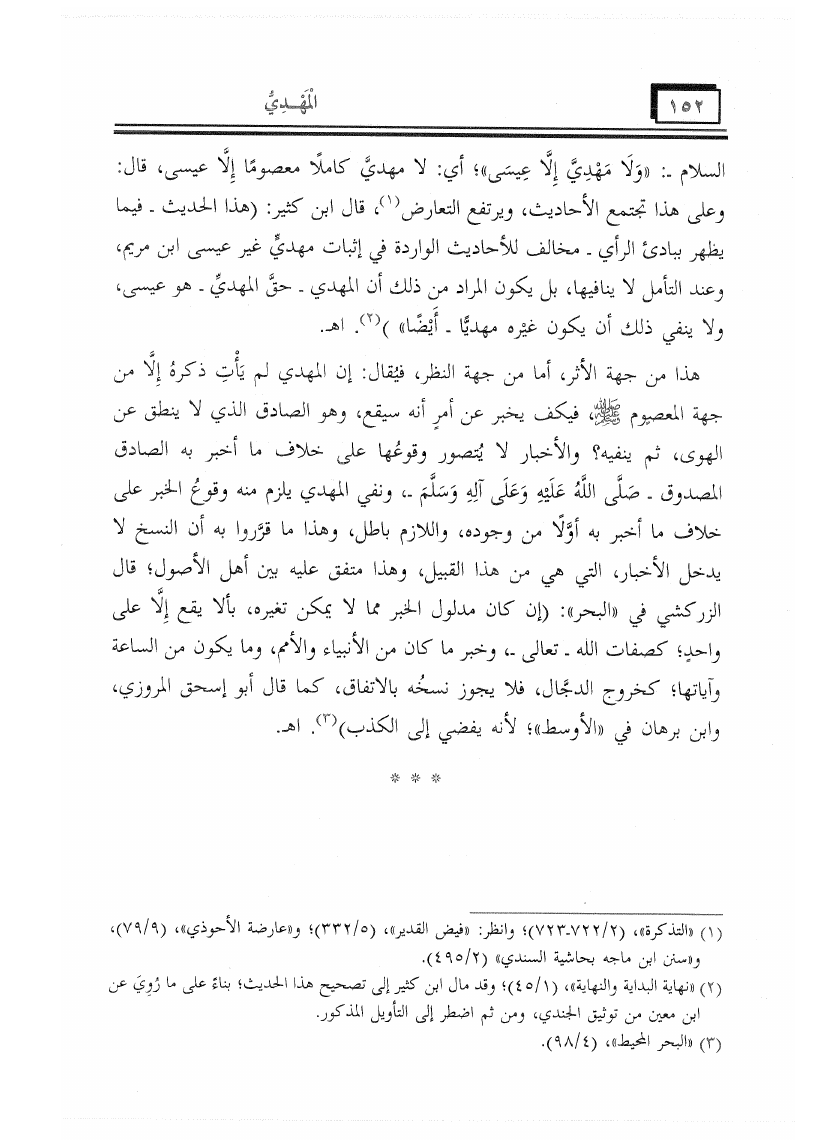 ١٥٢
الْمَهْـدِيُّ
السلام ـ: «وَلَا مَهْدِيَّ إِلَّا عِيسَى»؛ أي: لا مهديَّ كاملًا معصومًا إلَّا عيسى، قال:
وعلى هذا تجتمع الأحاديث، ويرتفع التعارض(١)، قال ابن كثير: (هذا الحديث ـ فيما
يظهر ببادئ الرأي ـ مخالف للأحاديث الواردة في إثبات مهديٍّ غير عيسى ابن مريم،
وعند التأمل لا ينافيها، بل يكون المراد من ذلك أن المهدي ـ حقَّ المهديِّ ـ هو عيسى،
ولا ينفي ذلك أن يكون غيْره مهديًّا ـ أَيْضًا» )(٢). اهـ.
هذا من جهة الأثر، أما من جهة النظر، فيُقال: إن المهدي لم يَأْتِ ذكرهُ إلَّا من
جهة المعصوم ﷺ، فيكف يخبر عن أمرٍ أنه سيقع، وهو الصادق الذي لا ينطق عن
الهوى، ثم ينفيه؟ والأخبار لا يُتصور وقوعُها على خلاف ما أخبر به الصادق
المصدوق ـ صَلَّى اللَّهُ عَلَيْهِ وَعَلَى آلِهِ وَسَلَّمَ ـ، ونفي المهدي يلزم منه وقوعُ الخبر على
خلاف ما أخبر به أوَّلًا من وجوده، واللازم باطل، وهذا ما قرَّروا به أن النسخ لا
يدخل الأخبار، التي هي من هذا القبيل، وهذا متفق عليه بين أهل الأصول؛ قال
الزركشي في «البحر»: (إن كان مدلول الخبر مما لا يمكن تغيره، بألا يقع إلَّا على
واحدٍ؛ كصفات الله ـ تعالى ـ، وخبر ما كان من الأنبياء والأمم، وما يكون من الساعة
وآياتها؛ كخروج الدجَّال، فلا يجوز نسخُه بالاتفاق، كما قال أبو إسحق المروزي،
وابن برهان في «الأوسط»؛ لأنه يفضي إلى الكذب)(٣). اهـ.
* * *
(١) «التذكرة»، (٧٢٢/٢-٧٢٣)؛ وانظر: «فيض القدير»، (٣٣٢/٥)؛ و«عارضة الأحوذي»، (٧٩/٩)،
و«سنن ابن ماجه بحاشية السندي» (٤٩٥/٢).
(٢) «نهاية البداية والنهاية»، (٤٥/١)؛ وقد مال ابن كثير إلى تصحيح هذا الحديث؛ بناءً على ما رُوِيَ عن
ابن معين من توثيق الجندي، ومن ثم اضطر إلى التأويل المذكور.
(٣) «البحر المحيط»، (٩٨/٤).